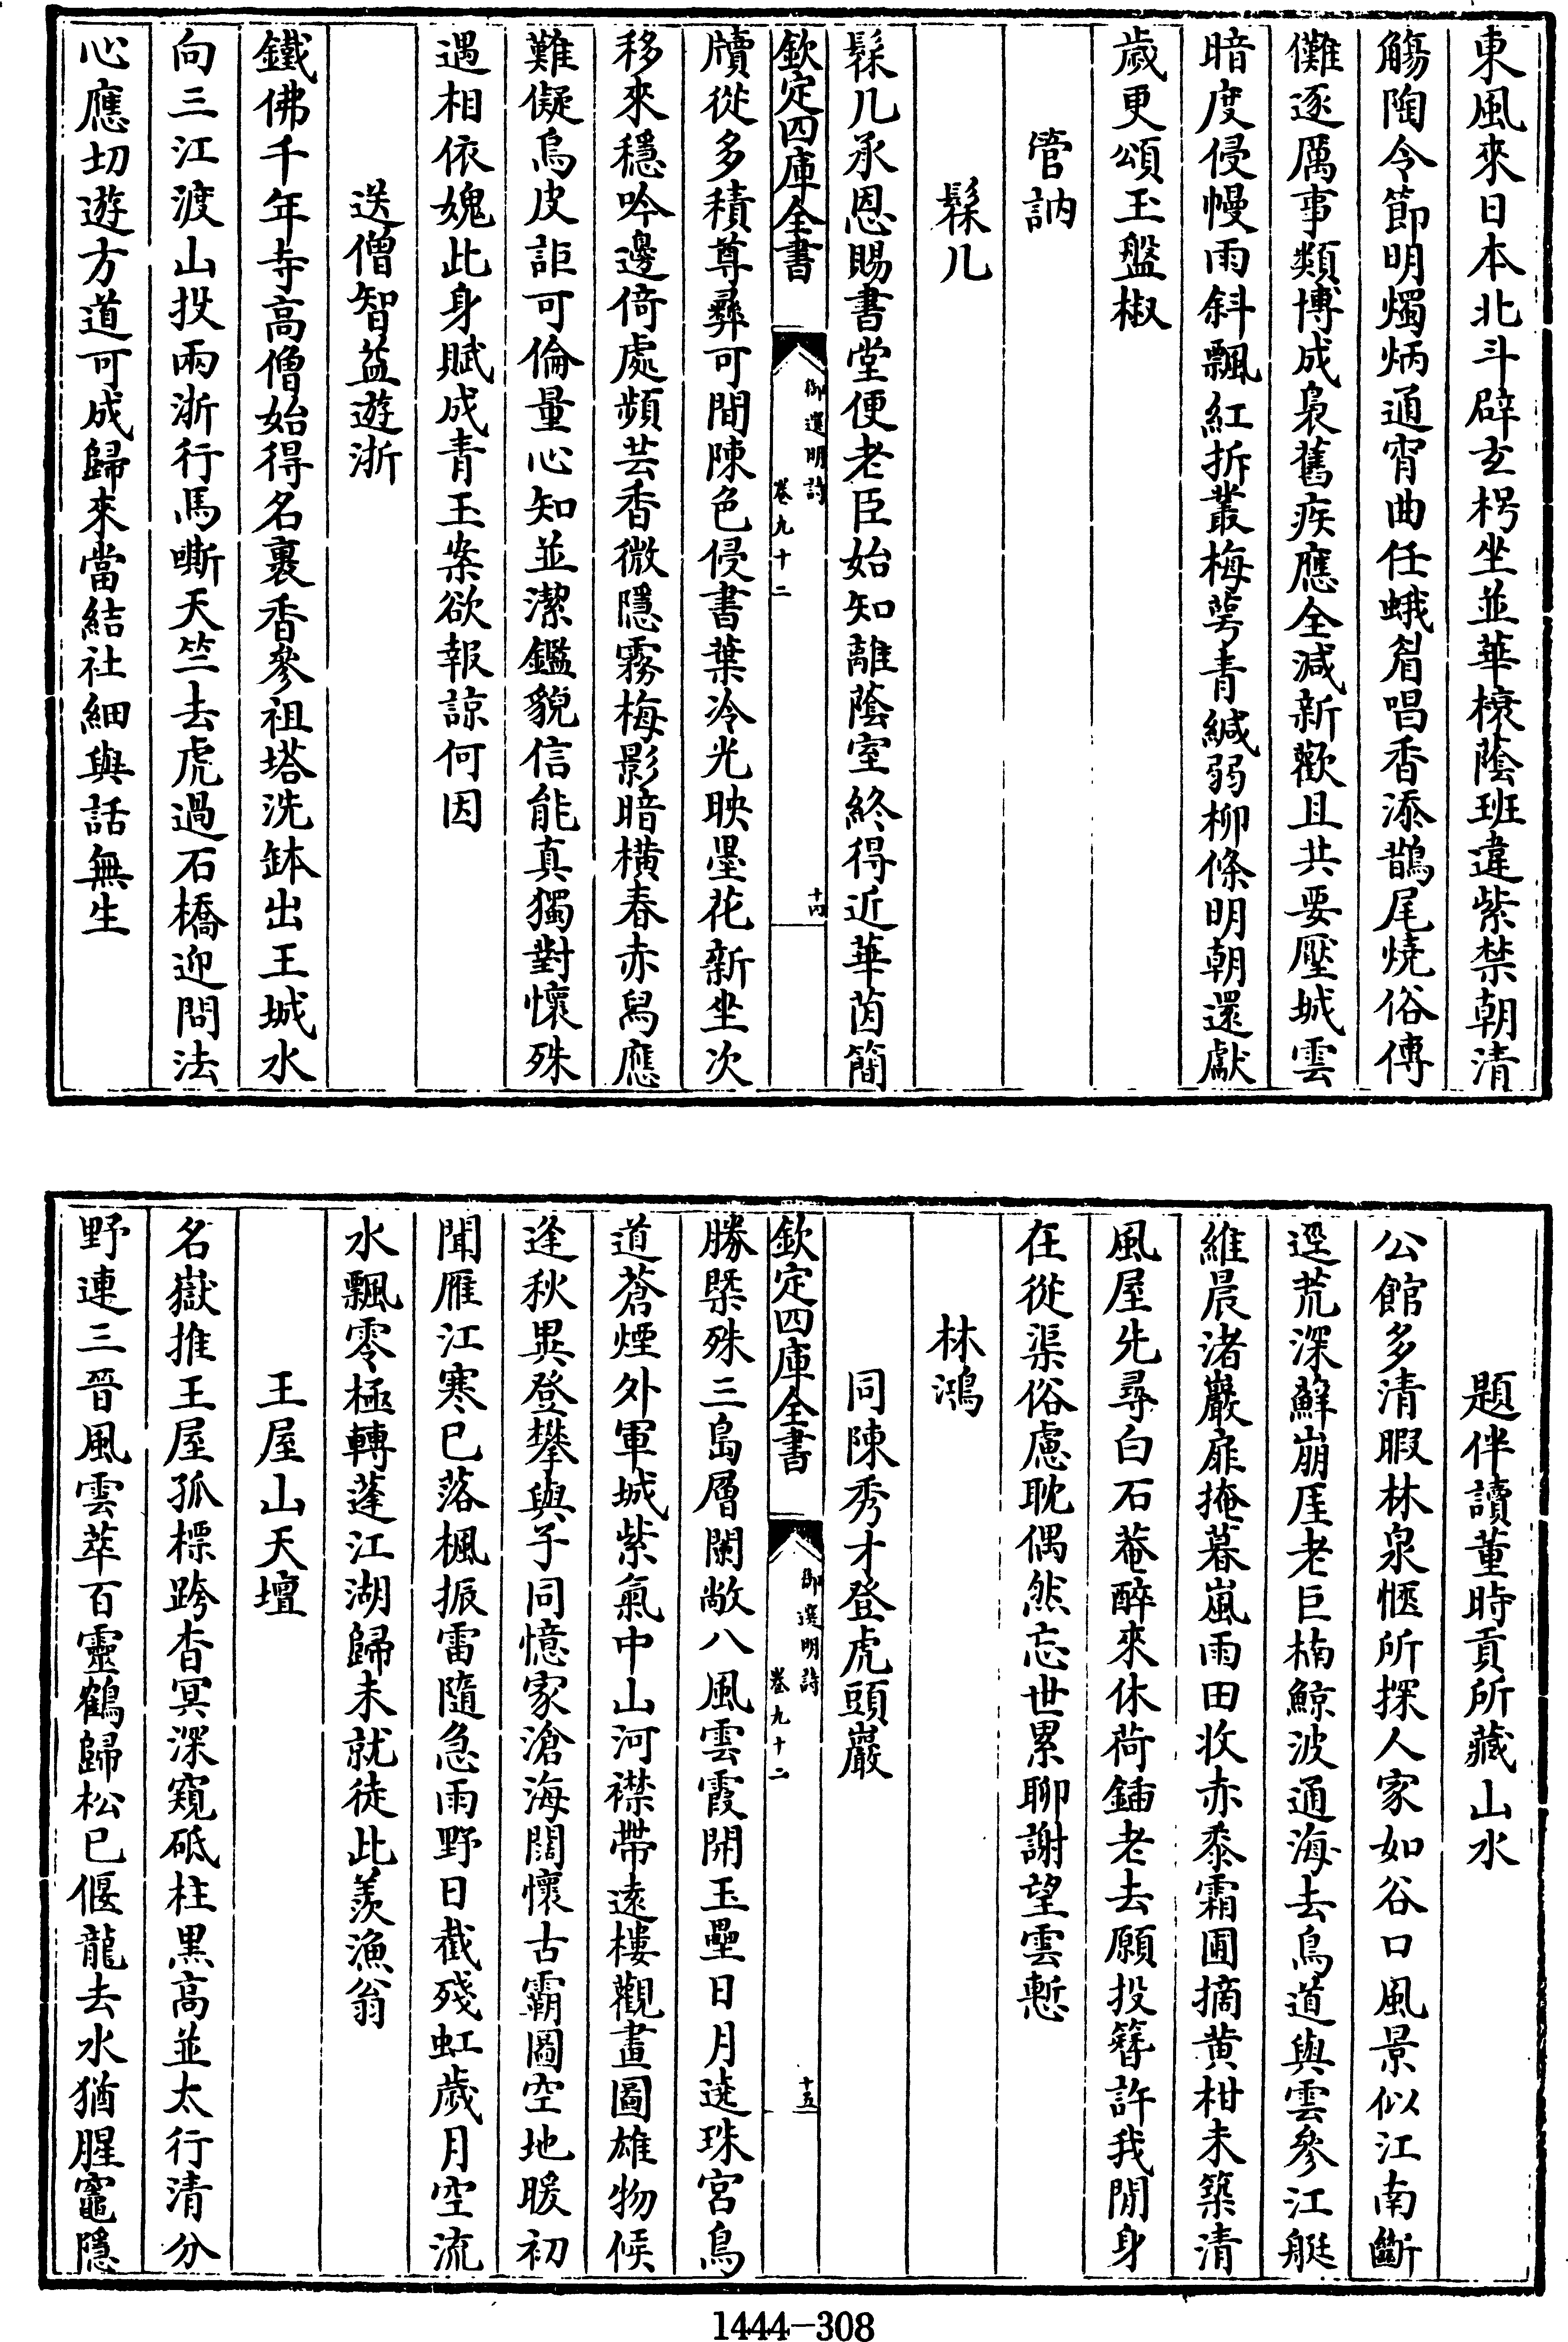 東風來日本北斗辟玄枵坐並華榱蔭班違紫禁朝清
觴陶令節明燭炳通宵曲任蛾眉唱香添鵲尾燒俗傳
儺逐厲事類博成裊舊疾應全減新歡且共要壓城雲
暗度侵幔雨斜飄紅拆叢梅萼青緘弱柳條明朝還獻
歲更頌玉盤椒
管訥
髹几
髹几承恩賜書堂便老臣始知離蔭室終得近華茵簡
欽定四庫全書
御選明詩
卷九十二
十四
牘從多積尊彞可間陳色侵書葉冷光映墨花新坐次
移來穩吟邊倚處頻芸香微隱霧梅影暗橫春赤舄應
難儗烏皮詎可倫量心知並潔鑑貌信能真獨對懷殊
遇相依媿此身賦成青玉案欲報諒何因
送僧智益遊浙
鐵佛千年寺高僧始得名裹香參祖塔洗鉢出王城水
向三江渡山投兩浙行馬嘶天竺去虎過石橋迎問法
心應切遊方道可成歸來當結社細與話無生
題伴讀董時貢所藏山水
公館多清暇林泉愜所探人家如谷口風景似江南斷
逕荒深蘚崩厓老巨楠鯨波通海去鳥道與雲參江艇
維晨渚巖扉掩暮嵐雨田收赤黍霜圃摘黃柑未築清
風屋先尋白石菴醉來休荷鍤老去願投簪許我閒身
在從渠俗慮耽偶然忘世累聊謝望雲慙
林鴻
同陳秀才登虎頭巖
欽定四庫全書
御選明詩
卷九十二
十五
勝槩殊三島層闌敞八風雲霞開玉壘日月遶珠宮鳥
道蒼煙外軍城紫氣中山河襟帶遠樓觀畫圖雄物候
逢秋異登攀與子同憶家滄海闊懷古霸圖空地暖初
聞雁江寒已落楓振雷隨急雨野日截殘虹歲月空流
水飄零極轉蓬江湖歸未就徒此羨漁翁
王屋山天壇
名嶽推王屋孤標跨杳冥深窺砥柱黑高並太行清分
野連三晉風雲萃百靈鶴歸松已偃龍去水猶腥竈隱
1444-308